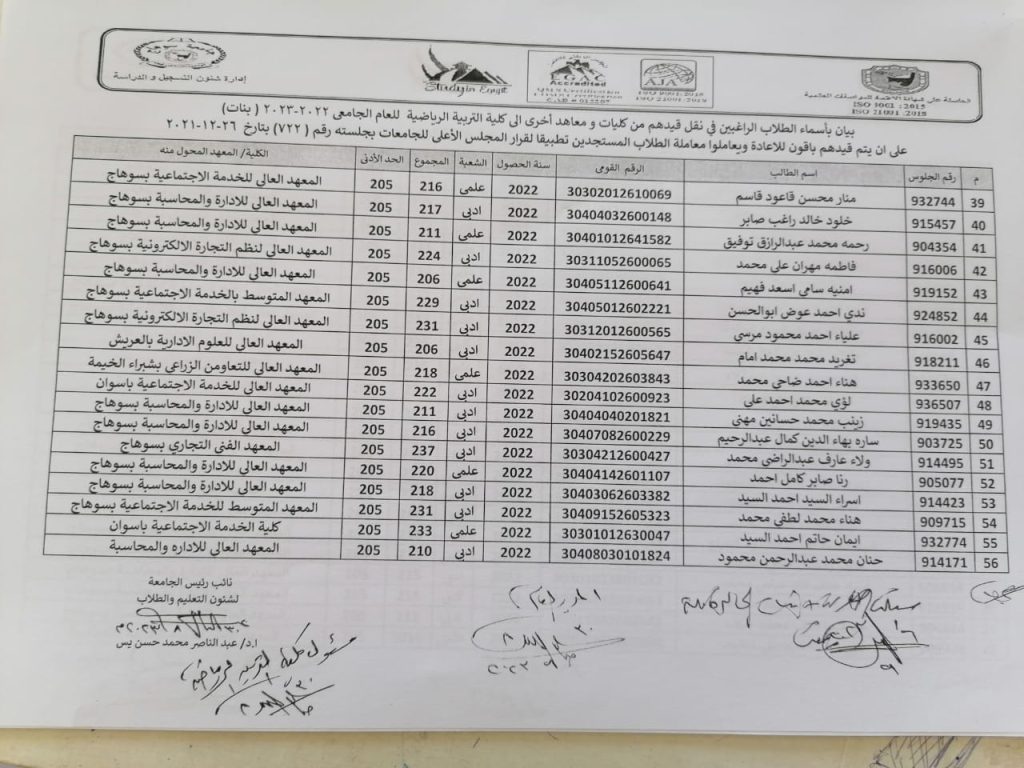 إدارة شئون التسجيل و الدراسة
Study in Egypt
EGAC
Accredited
CAB # 013205
AJA
ISO 9001 -2015
ISO 21001 -2018
ISO 9001 : 2015
ISO 21001 : 2018
بيان بأسماء الطلاب الراغبين في نقل قيدهم من كليات و معاهد أخرى الى كلية التربية الرياضية للعام الجامعى ٢٠٢٢-٢٠٢٣ ( بنات )
على ان يتم قيدهم باقون للاعادة ويعاملوا معاملة الطلاب المستجدين تطبيقا لقرار المجلس الأعلى للجامعات بجلسته رقم (٧٢٢) بتارخ ٢٦-١٢-٢٠٢١
م رقم الجلوس اسم الطالب الرقم القومى سنة الحصول الشعبة المجموع الحد الأدنى الكلية/ المعهد المحول منه
39 932744 منار محسن قاعود قاسم 30302012610069 2022 علمى 216 205 المعهد العالى للخدمة الاجتماعية بسوهاج
40 915457 خلود خالد راغب صابر 30404032600148 2022 ادبى 217 205 المعهد العالى للادارة والمحاسبة بسوهاج
41 904354 رحمه محمد عبدالرازق توفيق 30401012641582 2022 علمى 211 205 المعهد العالى للادارة والمحاسبة بسوهاج
42 916006 فاطمه مهران على محمد 30311052600065 2022 ادبى 224 205 المعهد العالى لنظم التجارة الالكترونية بسوهاج
43 919152 امنيه سامى اسعد فهيم 30405112600641 2022 علمى 206 205 المعهد العالى للادارة والمحاسبة بسوهاج
44 924852 ندي احمد عوض ابوالحسن 30405012602221 2022 ادبى 229 205 المعهد المتوسط بالخدمة الاجتماعية بسوهاج
45 916002 علياء احمد محمود مرسى 30312012600565 2022 ادبى 231 205 المعهد العالى لنظم التجارة الالكترونية بسوهاج
46 918211 تغريد محمد محمد امام 30402152605647 2022 ادبى 206 205 المعهد العالى للعلوم الادارية بالعريش
47 933650 هناء احمد ضاحى محمد 30304202603843 2022 علمى 218 205 المعهد العالى للتعاومن الزراعى بشبراء الخيمة
48 936507 لؤي محمد احمد على 30204102600923 2022 ادبى 222 205 المعهد العالى للخدمة الاجتماعية باسوان
49 919435 زينب محمد حسانين مهنى 30404040201821 2022 ادبى 211 205 المعهد العالى للادارة والمحاسبة بسوهاج
50 903725 ساره بهاء الدين كمال عبدالرحيم 30407082600229 2022 ادبى 216 205 المعهد العالى للادارة والمحاسبة بسوهاج
51 914495 ولاء عارف عبدالراضى محمد 30304212600427 2022 ادبى 237 205 المعهد الفنى التجاري بسوهاج
52 905077 رنا صابر كامل احمد 30404142601107 2022 علمى 220 205 المعهد العالى للادارة والمحاسبة بسوهاج
53 914423 اسراء السيد احمد السيد 30403062603382 2022 ادبى 218 205 المعهد العالى للادارة والمحاسبة بسوهاج
54 909715 هناء محمد لطفى محمد 30409152605323 2022 ادبى 231 205 المعهد المتوسط للخدمة الاجتماعية بسوهاج
55 932774 ايمان حاتم احمد السيد 30301012630047 2022 علمى 233 205 كلية الخدمة الاجتماعية باسوان
56 914171 حنان محمد عبدالرحمن محمود 30408030101824 2022 ادبى 210 205 المعهد العالى للاداره والمحاسبة
نائب رئيس الجامعة
لشئون التعليم والطلاب
ا.د/ عبد الناصر محمد حسن يس